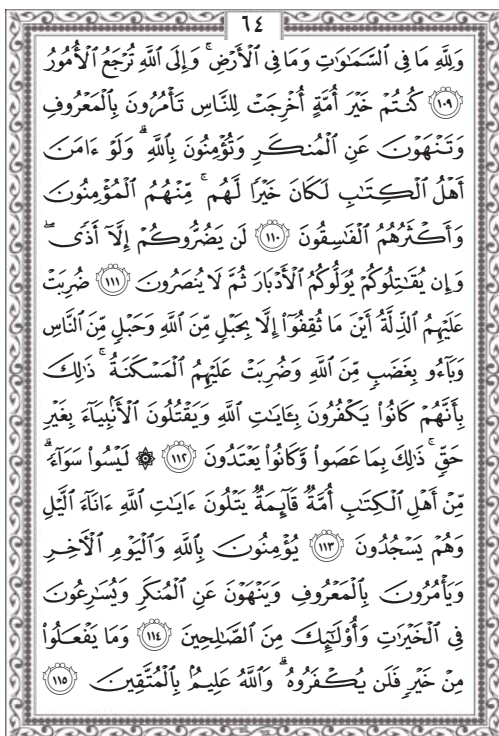 ٦٤
وَلِلَّهِ مَا فِي ٱلسَّمَٰوَٰتِ وَمَا فِي ٱلْأَرْضِ ۚ وَإِلَى ٱللَّهِ تُرْجَعُ ٱلْأُمُورُ
١٠٩ كُنتُمْ خَيْرَ أُمَّةٍ أُخْرِجَتْ لِلنَّاسِ تَأْمُرُونَ بِٱلْمَعْرُوفِ
وَتَنْهَوْنَ عَنِ ٱلْمُنكَرِ وَتُؤْمِنُونَ بِٱللَّهِ ۗ وَلَوْ ءَامَنَ
أَهْلُ ٱلْكِتَٰبِ لَكَانَ خَيْرًا لَّهُم ۚ مِّنْهُمُ ٱلْمُؤْمِنُونَ
وَأَكْثَرُهُمُ ٱلْفَٰسِقُونَ ١١٠ لَن يَضُرُّوكُمْ إِلَّآ أَذًى ۖ
وَإِن يُقَٰتِلُوكُمْ يُوَلُّوكُمُ ٱلْأَدْبَارَ ثُمَّ لَا يُنصَرُونَ ١١١ ضُرِبَتْ
عَلَيْهِمُ ٱلذِّلَّةُ أَيْنَ مَا ثُقِفُوٓا۟ إِلَّا بِحَبْلٍ مِّنَ ٱللَّهِ وَحَبْلٍ مِّنَ ٱلنَّاسِ
وَبَآءُو بِغَضَبٍ مِّنَ ٱللَّهِ وَضُرِبَتْ عَلَيْهِمُ ٱلْمَسْكَنَةُ ۚ ذَٰلِكَ
بِأَنَّهُمْ كَانُوا۟ يَكْفُرُونَ بِـَٔايَٰتِ ٱللَّهِ وَيَقْتُلُونَ ٱلْأَنۢبِيَآءَ بِغَيْرِ
حَقٍّ ۚ ذَٰلِكَ بِمَا عَصَوا۟ وَّكَانُوا۟ يَعْتَدُونَ ١١٢ ۞ لَيْسُوا۟ سَوَآءً ۗ
مِّنْ أَهْلِ ٱلْكِتَٰبِ أُمَّةٌ قَآئِمَةٌ يَتْلُونَ ءَايَٰتِ ٱللَّهِ ءَانَآءَ ٱلَّيْلِ
وَهُمْ يَسْجُدُونَ ١١٣ يُؤْمِنُونَ بِٱللَّهِ وَٱلْيَوْمِ ٱلْأٓخِرِ
وَيَأْمُرُونَ بِٱلْمَعْرُوفِ وَيَنْهَوْنَ عَنِ ٱلْمُنكَرِ وَيُسَٰرِعُونَ
فِي ٱلْخَيْرَٰتِ وَأُو۟لَٰٓئِكَ مِنَ ٱلصَّٰلِحِينَ ١١٤ وَمَا يَفْعَلُوا۟
مِنْ خَيْرٍ فَلَن يُكْفَرُوهُ ۗ وَٱللَّهُ عَلِيمٌۢ بِٱلْمُتَّقِينَ ١١٥